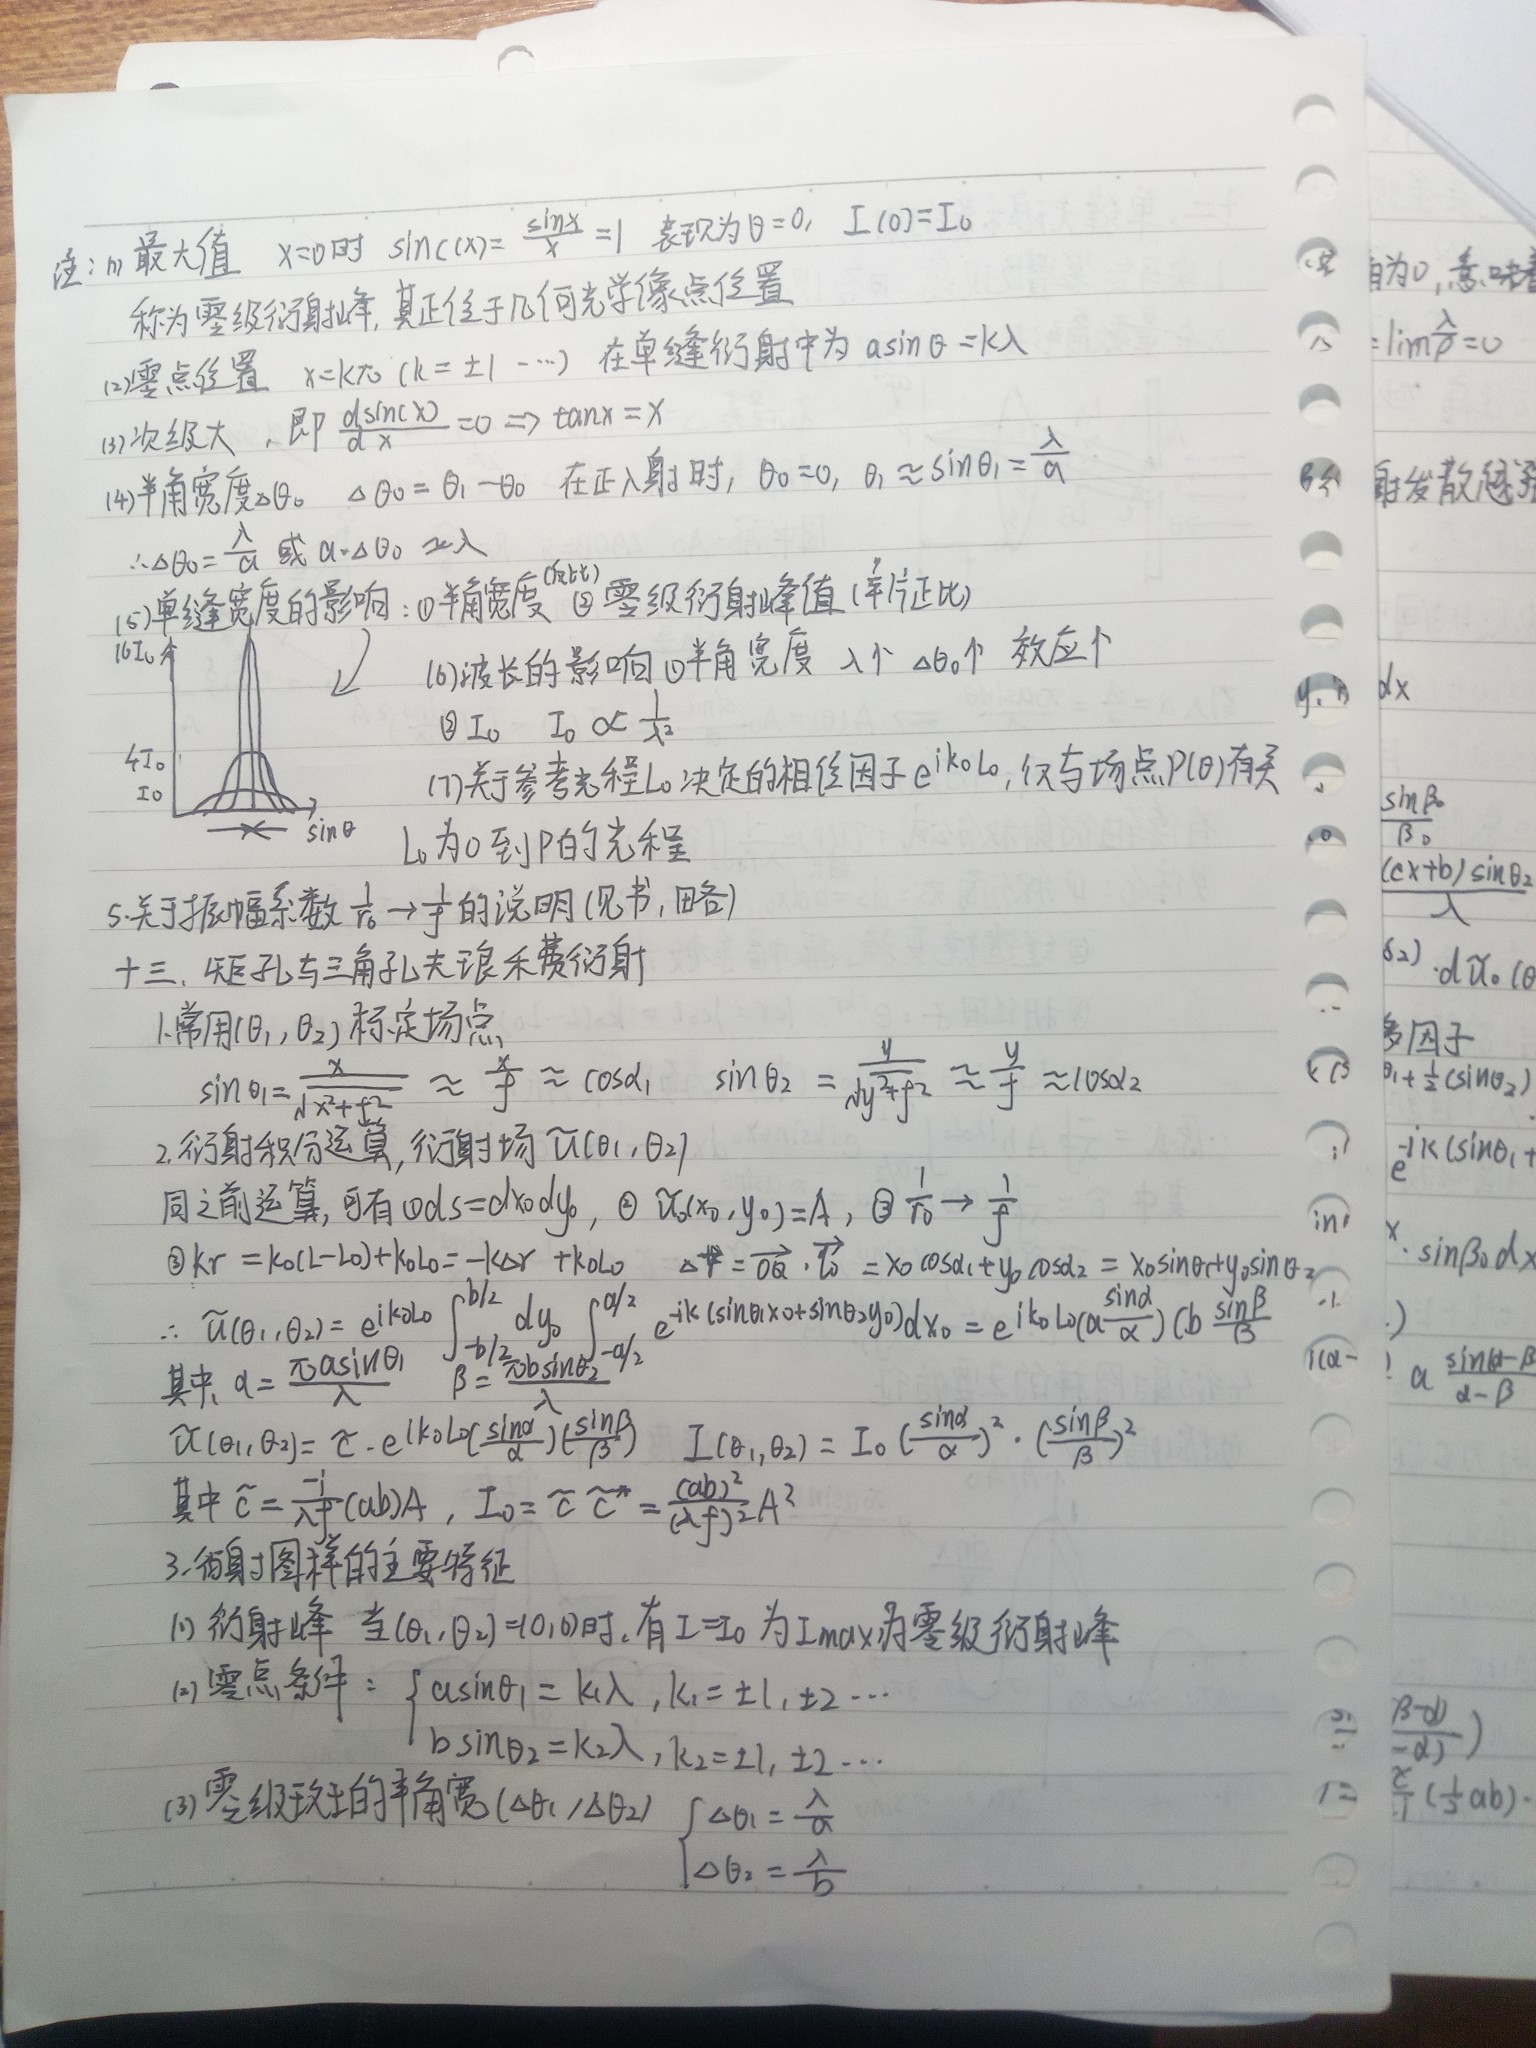 注：(1) 最大值 x=0时 sinc(x)= sinx/x =1 表现为θ=0, I(0)=I₀
称为零级衍射峰, 真正位于几何光学像点位置
(2)零点位置 x=kπ (k=±1 …) 在单缝衍射中为 asinθ=kλ
(3)次级大, 即 dsinc(x)/dx =0 ⇒ tanx=x
(4)半角宽度Δθ₀ Δθ₀=θ₁-θ₀ 在正入射时, θ₀=0, θ₁≈sinθ₁=λ/a
∴Δθ₀=λ/a 或 a·Δθ₀≈λ
(5)单缝宽度的影响：①半角宽度(反比) ②零级衍射峰值(平方正比)
16I₀
4I₀
I₀
sinθ
(6)波长的影响 ①半角宽度 λ↑ Δθ₀↑ 效应↑
②I₀ I₀∝1/λ²
(7)关于参考光程L₀决定的相位因子e^{ik₀L₀}, 仅与场点P(θ)有关
L₀为0到P的光程
5.关于振幅系数 1/r₀→1/f 的说明(见书, 略)
十三、矩孔与三角孔夫琅禾费衍射
1.常用(θ₁,θ₂)标定场点
sinθ₁=x/√(x²+f²) ≈ x/f ≈ cosα₁ sinθ₂ = y/√(y²+f²) ≈ y/f ≈ cosα₂
2.衍射积分运算, 衍射场 ũ(θ₁,θ₂)
同之前运算, 可有①ds=dx₀dy₀, ② ũ₀(x₀,y₀)=A, ③ 1/r₀→1/f
③kr=k₀(L-L₀)+k₀L₀=-kΔr+k₀L₀ Δr=→OQ·→r₀ =x₀cosα₁+y₀cosα₂=x₀sinθ₁+y₀sinθ₂
∴ ũ(θ₁,θ₂)=e^{ik₀L₀}∫_{-b/2}^{b/2}dy₀∫_{-a/2}^{a/2}e^{-ik(sinθ₁x₀+sinθ₂y₀)}dx₀=e^{ik₀L₀}(a sinα/α)(b sinβ/β
其中, α=πasinθ₁/λ β=πbsinθ₂/λ
ũ(θ₁,θ₂)=c̃·e^{ik₀L₀}(sinα/α)(sinβ/β) I(θ₁,θ₂)=I₀(sinα/α)²·(sinβ/β)²
其中 c̃=-i/λf (ab)A, I₀=c̃c̃*=(ab)²/(λf)² A²
3.衍射图样的主要特征
(1)衍射峰 当(θ₁,θ₂)=(0,0)时, 有I=I₀ 为Imax为零级衍射峰
(2)零点条件：{asinθ₁=k₁λ, k₁=±1, ±2 …
bsinθ₂=k₂λ, k₂=±1, ±2 …
(3)零级的半角宽(Δθ₁,Δθ₂) {Δθ₁=λ/a
Δθ₂=λ/b
为0, 意味着
=lim λ/ρ=0
射发散
dx
sinβ₀/β₀
(cx+b)sinθ₂/λ
·dũ₀(θ
因子
θ₁+½(sinθ₂)
e^{-ik(sinθ₁+
·sinβ₀dx
a sin(α-β/α-β
β-α)/-α)
(½ab)·